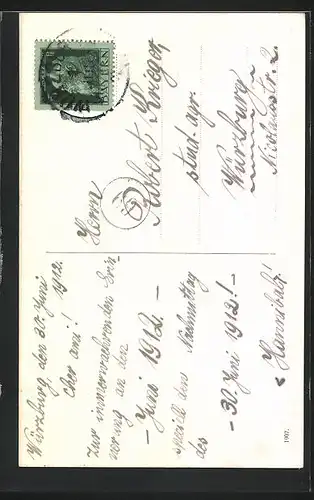 Würzburg, den 30. Juni
1912.
Cher ami!
Zur immerwährenden Erin-
nerung an den
- Juni 1912 -
speziell den Nachmittag
des
- 30. Juni 1912! -
Hannibal!
Herrn
Robert Krieger
stud. agr.
Würzburg
Nicolausstr. 2.
BAYERN
1907.